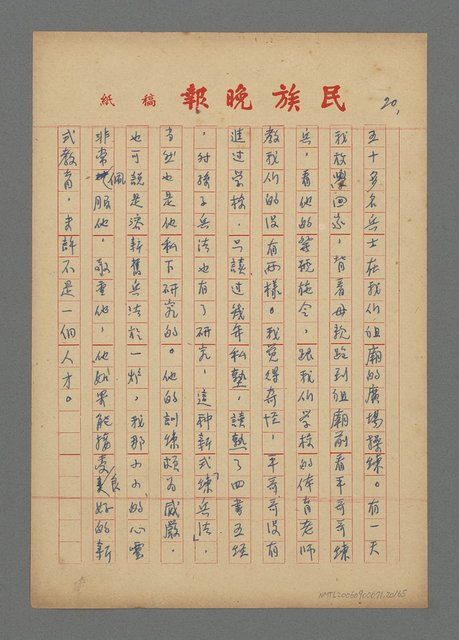 民族晚報 稿紙
20,
五十多名兵士在我们祖廟的廣場操练。有一天
我放學回家，背着母親跑到祖廟前看平哥哥练
兵，看他的號施令，跟我们学校的体育老师
教我们的没有两様。我覚得奇怪，平哥哥没有
進过学校，只讀过幾年私塾，讀熟了四書五经
，对孫子兵法也有了研究，這种新式「练兵法」，
当然也是他私下研究的。他的訓练頗為威嚴，
也可說是溶新舊兵法於一炉，我那小小的心靈
非常佩服他，敬重他，他如果能接受良好的新
式教育，未許不是一個人才。
NMTL20050900071.20165